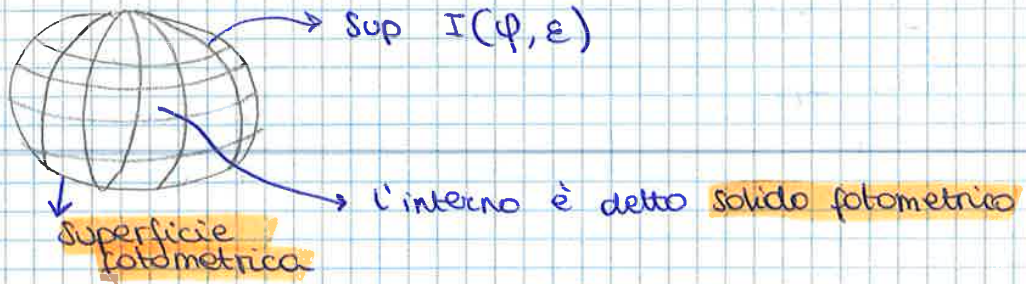 Sup I(φ, ε)
l'interno è detto solido fotometrico
superficie
fotometrica